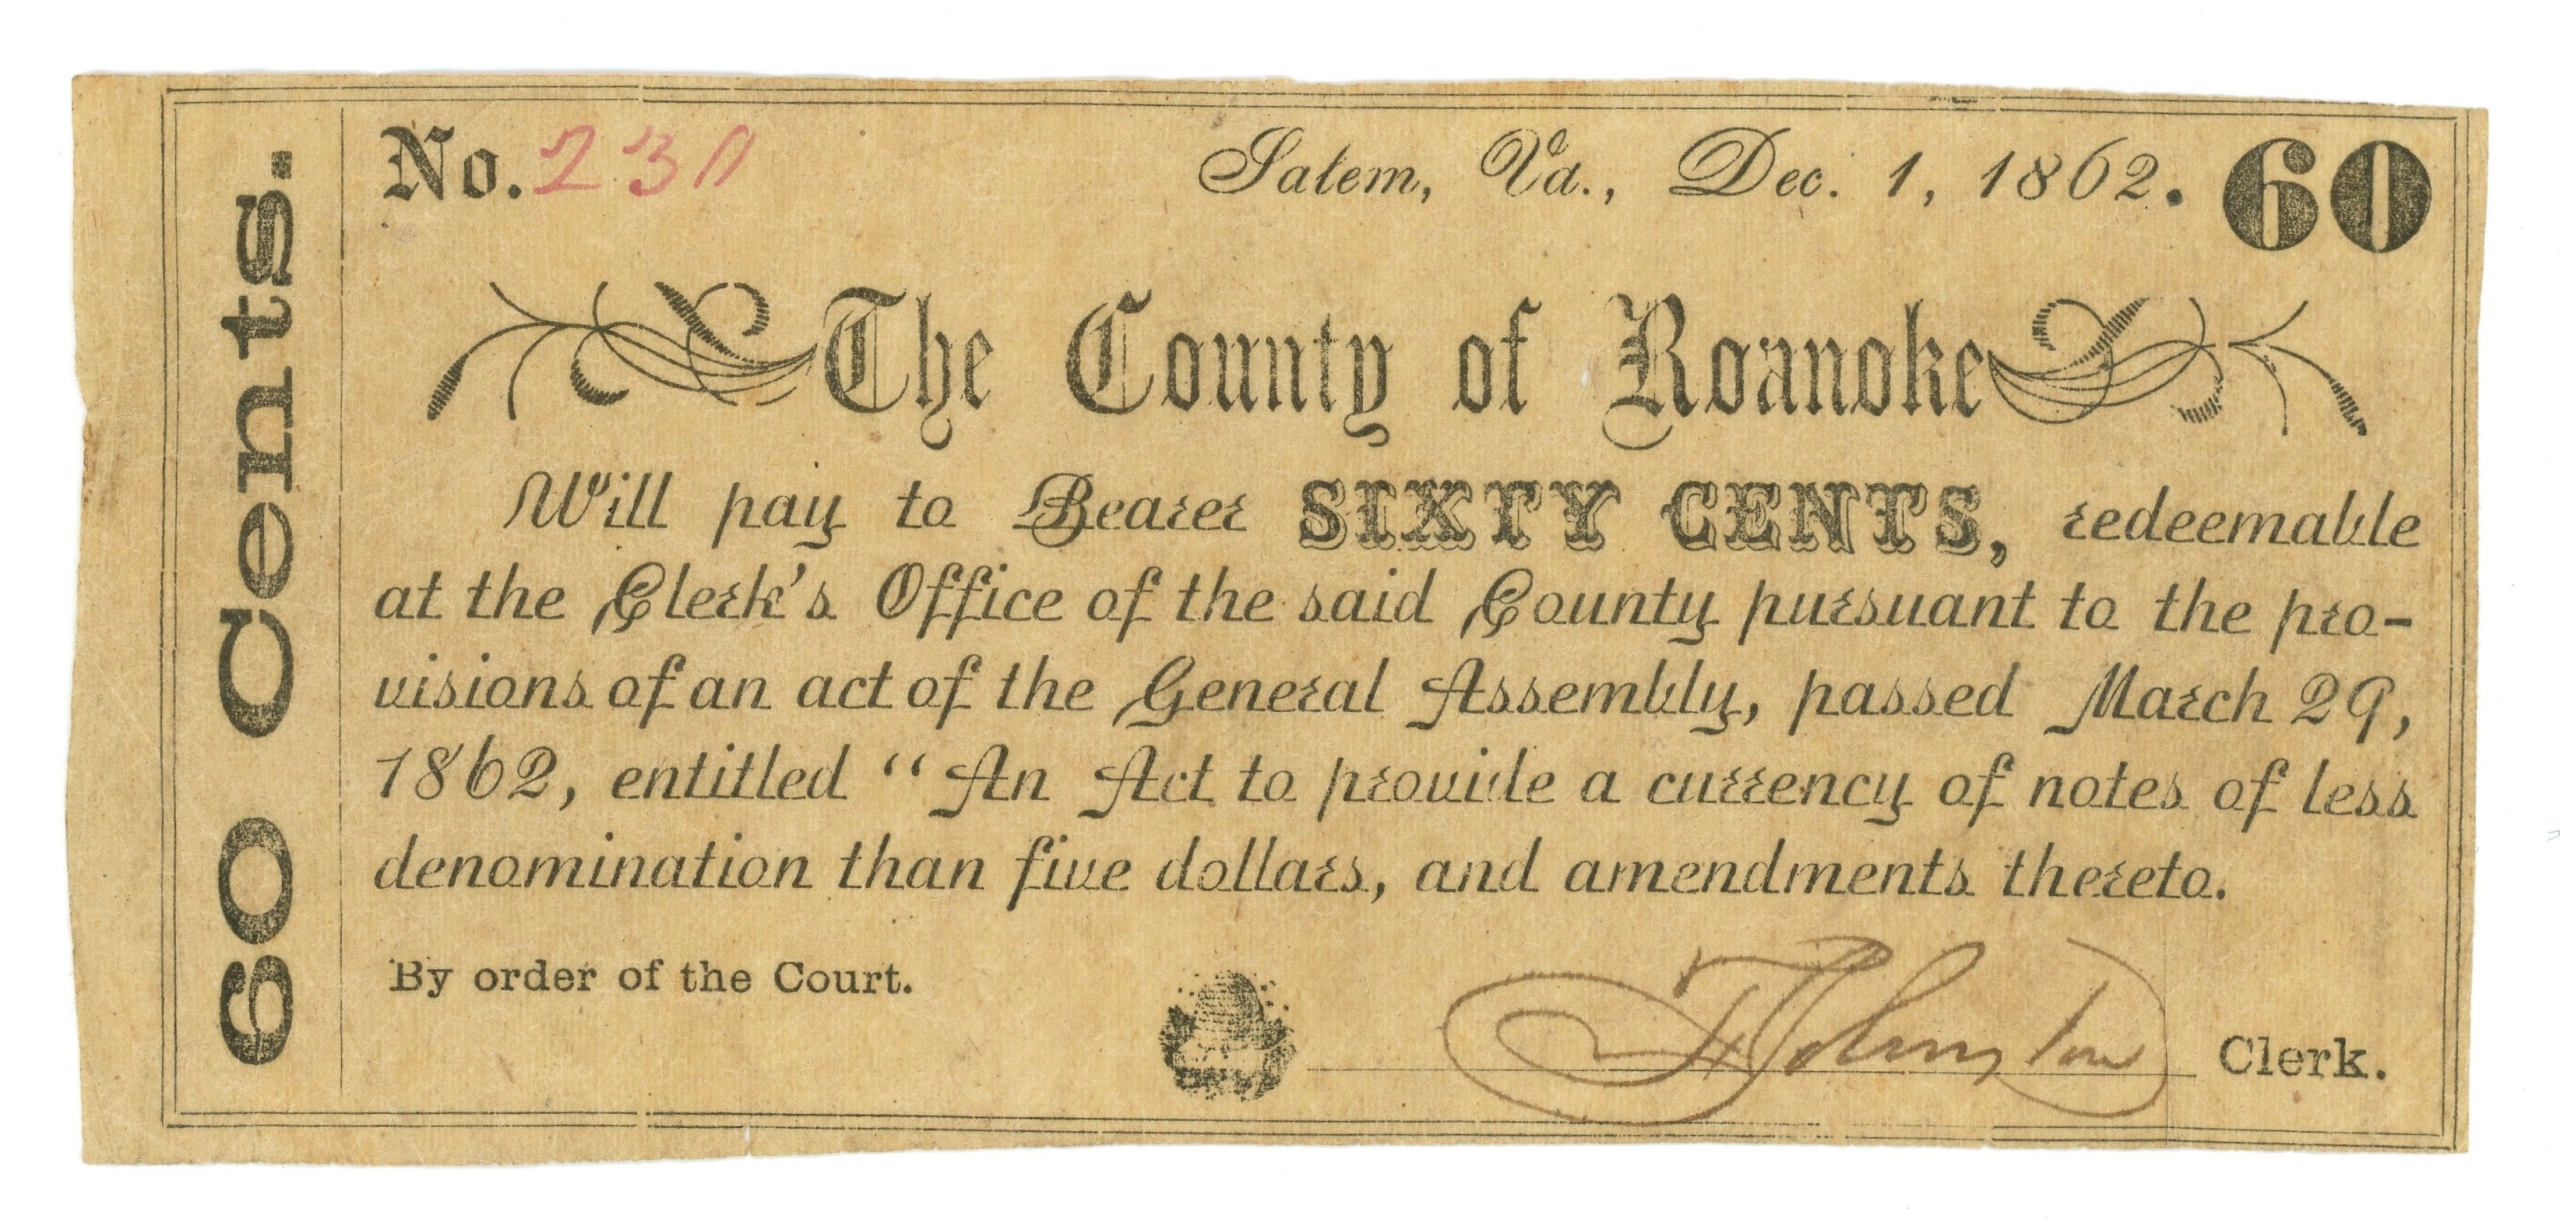 60 Cents.
No. 230
Salem, Va., Dec. 1, 1862. 60
The County of Roanoke
Will pay to Bearer SIXTY CENTS, redeemable
at the Clerk's Office of the said County pursuant to the pro-
visions of an act of the General Assembly, passed March 29,
1862, entitled "An Act to provide a currency of notes of less
denomination than five dollars, and amendments thereto.
By order of the Court.
F Johnston Clerk.